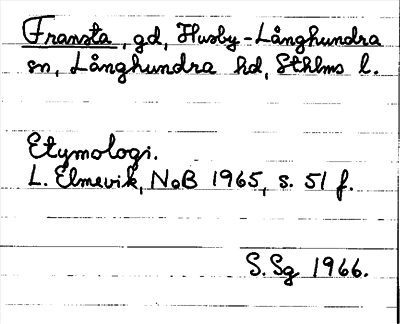 Fransta, gd, Husby-Långhundra
sn, Långhundra hd, Sthlms l.
Etymologi.
L. Elmevik, NoB 1965, s. 51 f.
S. Sg 1966.